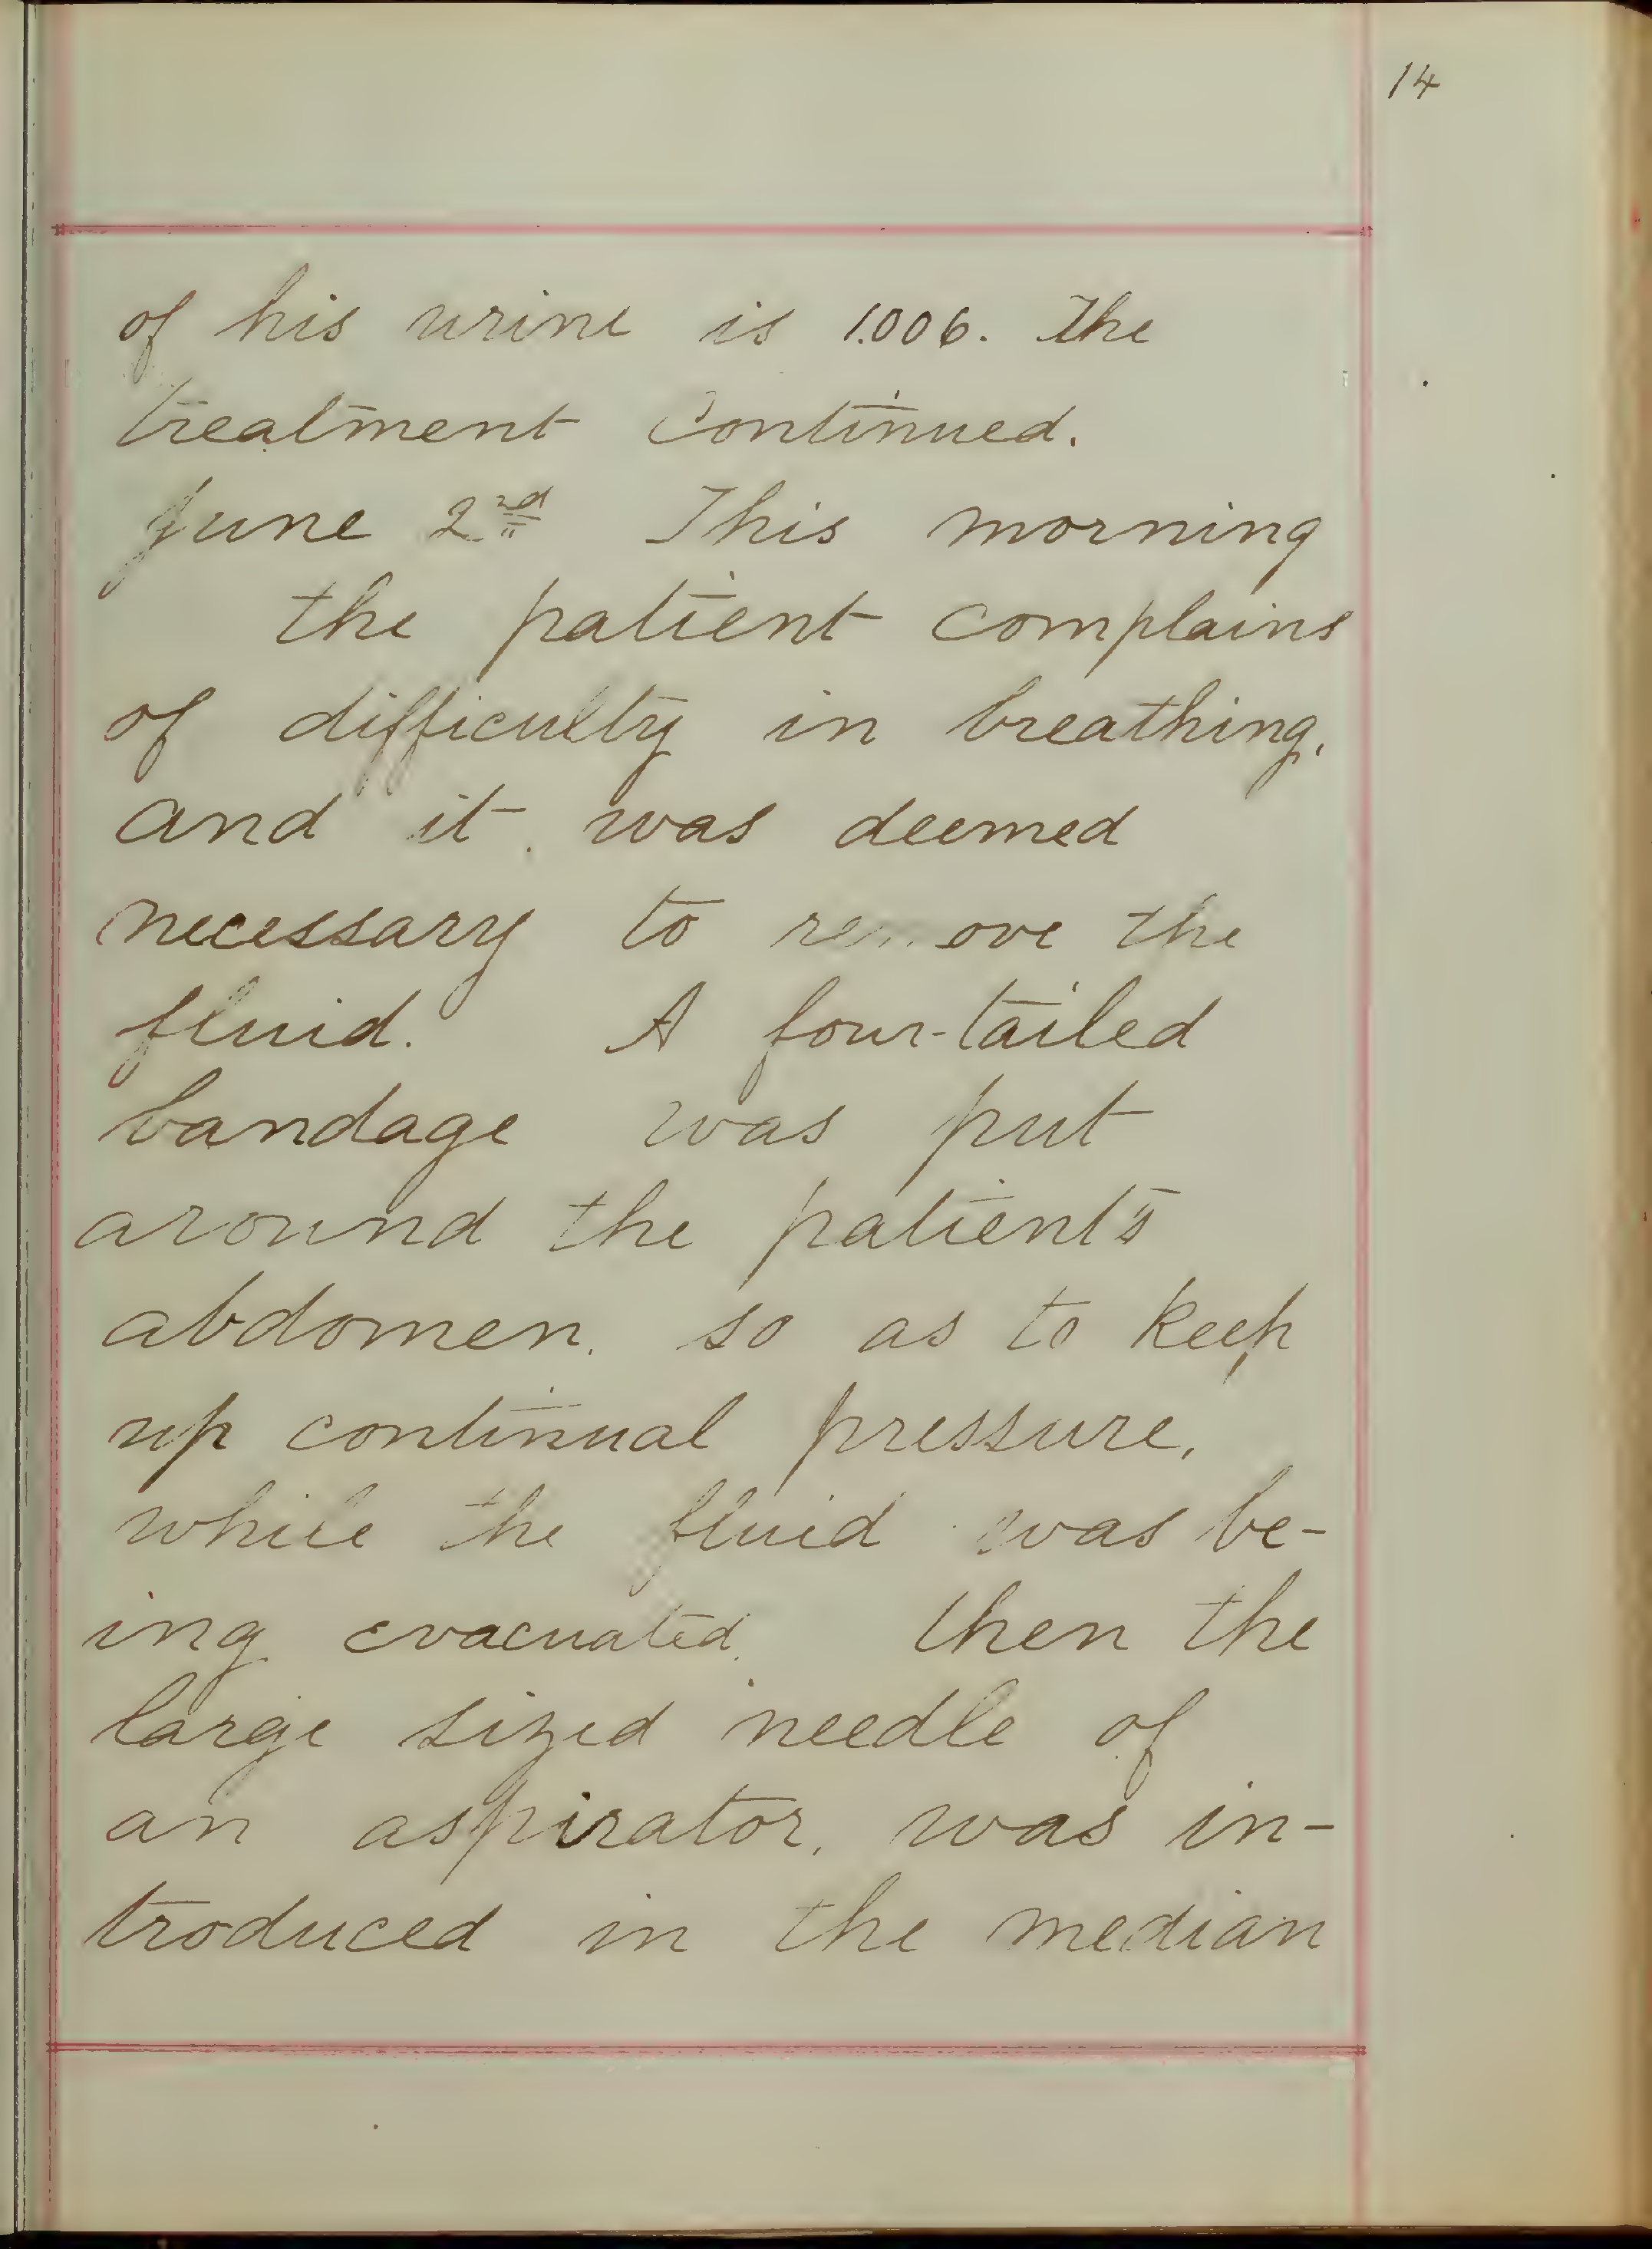 14
of his urine is 1.006. The
treatment continued.
June 2nd This morning
the patient complains
of difficulty in breathing,
and it was deemed
necessary to remove the
fluid. A four-tailed
bandage was put
around the patient's
abdomen, so as to keep
up continual pressure,
while the fluid was be-
ing evacuated, then the
large sized needle of
an aspirator, was in-
troduced in the median